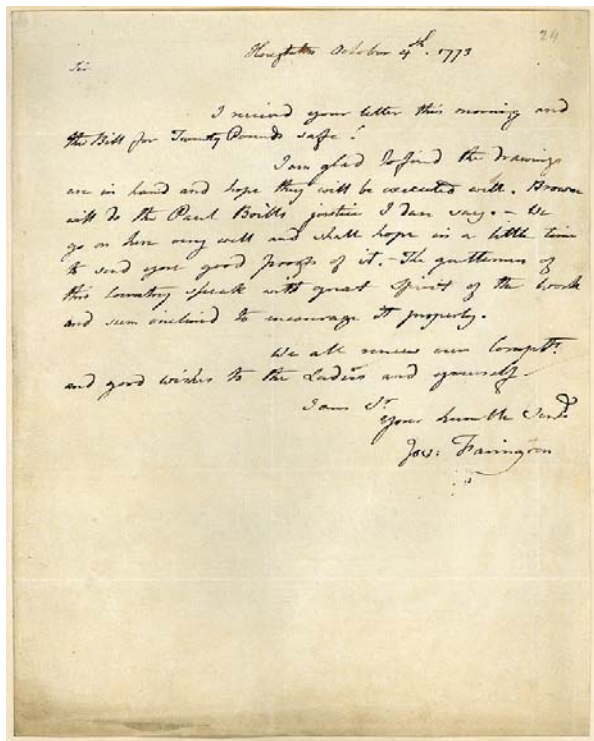 24
Houghton October 4th. 1773
Sir
I received your letter this morning and
the Bill for Twenty Pounds safe!
I am glad to find the Drawings
are in hand and hope they will be executed well. Browne
will do the Paul Brills justice I dare say. — We
go on here very well and shall hope in a little time
to send you good proofs of it. — The gentlemen of
this Country speak with great spirit of the work
and seem inclined to encourage it properly.
We all renew our Complts.
and good wishes to the Ladies and yourself —
I am Sr.
Your humble Servt.
Jos: Farington